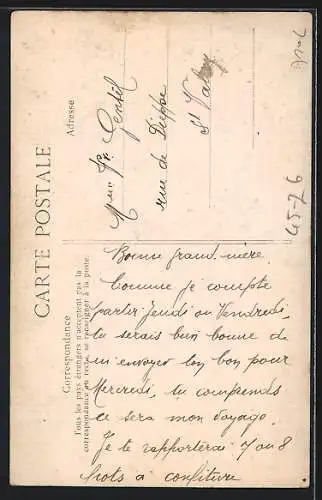 CARTE POSTALE
Correspondance
Tous les pays étrangers n'acceptent pas la
correspondance au recto, se renseigner à la poste.
Adresse
Mme Vve Gentil
rue de Dieppe
St Valery
45-76
Bonne grand-mère
Comme je compte
partir Jeudi ou Vendredi
tu serais bien bonne de
m'envoyer ton bon pour
Mercredi, tu comprends
ce sera mon voyage.
Je te rapporterai 7 ou 8
pots a confiture